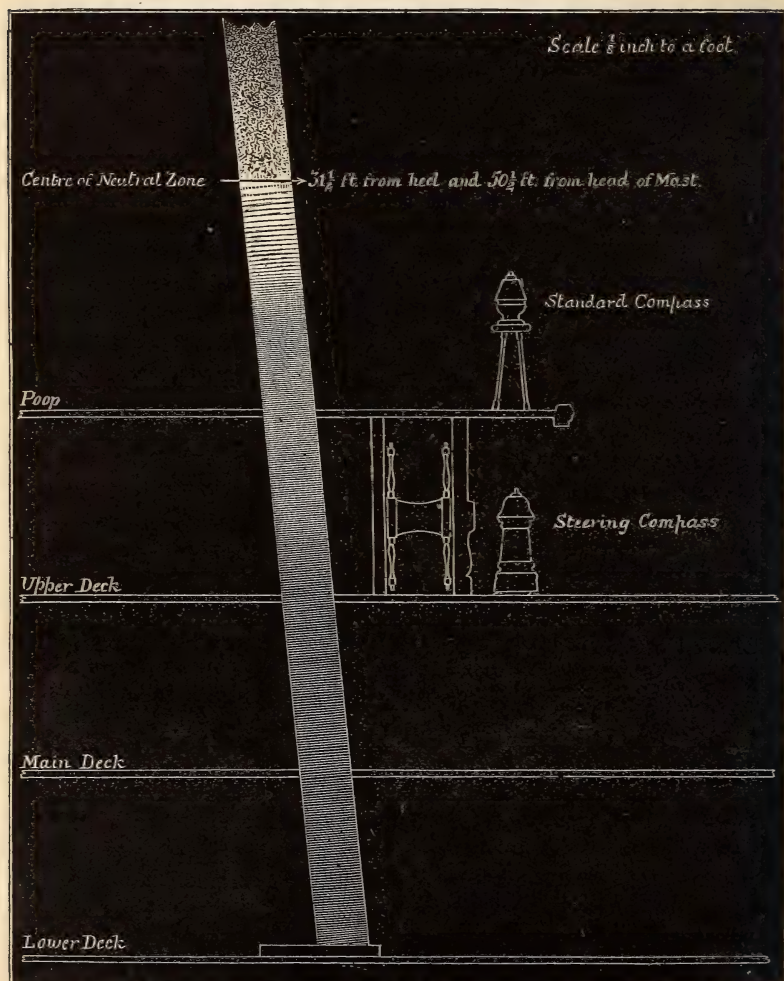 Scale ⅛ inch to a foot.
Centre of Neutral Zone
31½ ft from heel and 50½ ft from head of Mast.
Standard Compass
Poop
Steering Compass
Upper Deck
Main Deck
Lower Deck